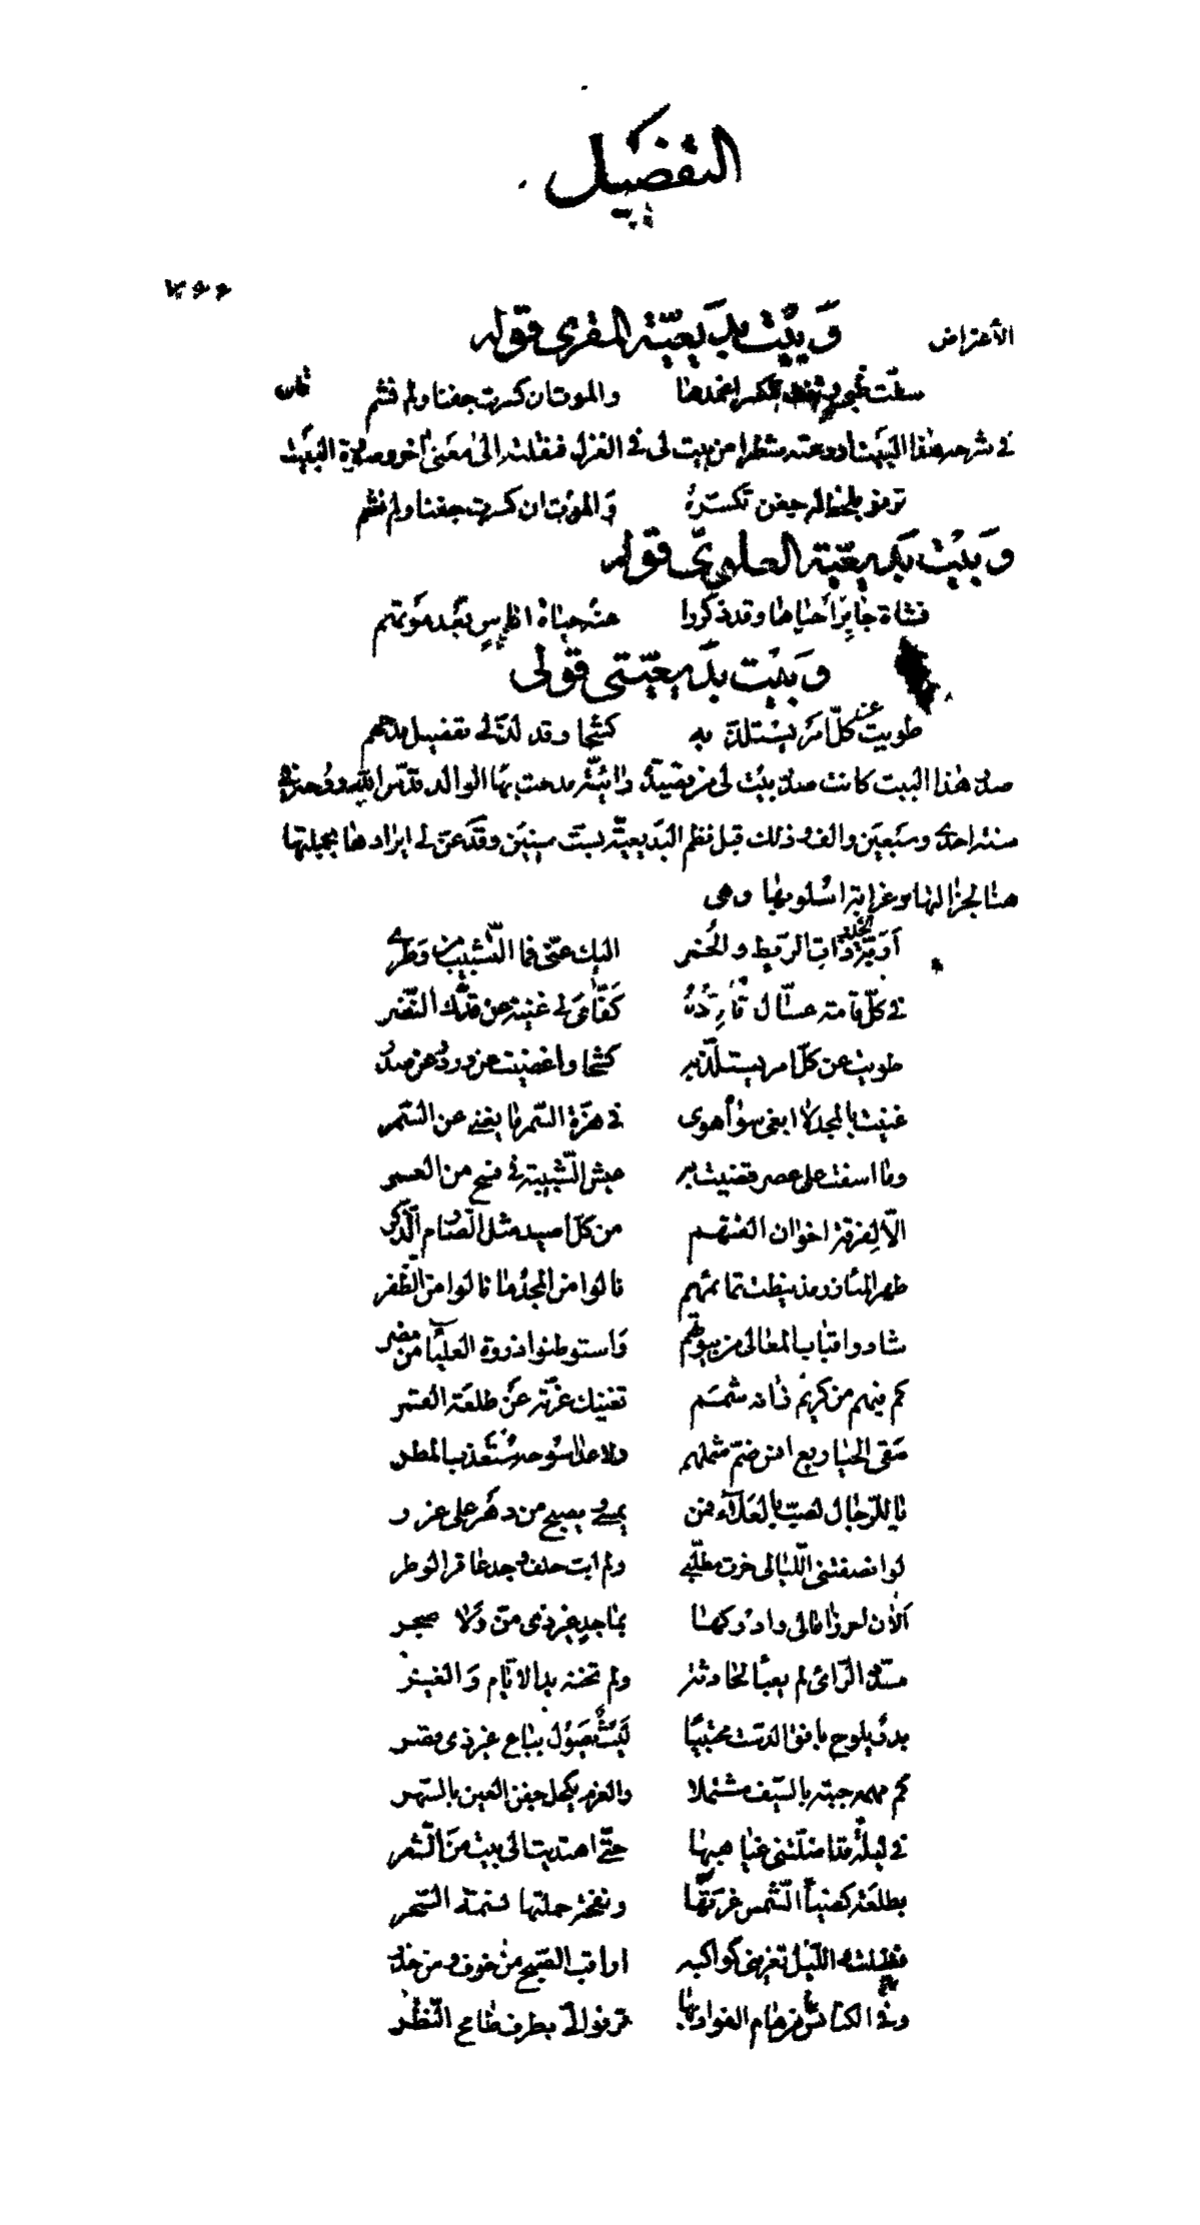 التفضيل
٣٩٩
الأعتراض وَبيْت بديعيّة المقرى قوله
سقت والموت ان كسرت جفنا ولم تشم
فى شرحه هذا البيت اودعته شطرا من بيت لى فى الغزل فنقلته الى معنى اخر وصلة البيت
ترنو بلحظ لم جفن تكسّره وَالموت ان كسرت جفنا ولم تشم
وَبيْت بَديعيّة العلوىّ قوله
فشاة جابر احياها وقد ذكروا عنه حياة اناس بعد موتهم
وَبَيْت بدَيعيّتى قولى
طويت عن كلّ امر يستلذّ به كشحا وقد لذّ لى تفضيل مدحهم
صدر هذا البيت كانت صدر بيت لى من قصيدة رائيّة مدحت بها الوالد قدّس الله روحه فى
سنة احدى وسَبعين والف وذلك قبل نظم البَديعيّة بستّ سنين وقد عنّ لى ايرادها بجملتها
هنا لجزالتها وغرابة اسلوبها وهى
ذات الريط والخُمر اليك عنّى فما التّشبيب من وَطرى
فى كلّ قامة عسّال كَفّاى لى غنية عن قدّك النّضر
طويت عن كلّ امر يستلذّ به كشحا واغضيت عن ورد وعن صدر
غنيت بالمجد لا ابغى سواه هوى فى هزّة السّمر ما يغنى عن السّمر
وما اسفت على عصر قضيت به عيش الشّبيبة فى فسح من العمر
الّا لفرقة اخوان الفتهم من كلّ اصيد مثل الصّارم الذّكر
طهر المآزر مذ نيطت تمائمهم نالوا من المجد ما نالوا من الظّفر
شادوا قباب المعالى من بيوتهم وَاستوطنوا ذروة العليا من مضر
كم فيهم من كريم زانه شمَم تغنيك غرّته عن طلعة القمر
سَقى الحيا ربع انس ضمّ شملهم ولا عدا سوحه مُستعذب المطر
ياللّرجال لصبّ يمسى ويصبح من دهر على غرر
لو انصفتنى اللّيالى حزت مطلّبى ولم ابت حلف وجد عاقر الوطر
الآن وادركها بماجد غير ذى منّ وَلا ضجر
مسدّد الرّأى لم يعبأ لحادثة ولم تخنه يد الايّام وَالغير
بدر يلوح بافق الدست محتبيا لَيث يَصول بباع غير ذى قصر
كم مهمه جبته بالسّيف مشتملا والعزم يكحل جفن العين بالسّهر
فى ليلة قد اضلّتنى غياهبها حتّى اهتديت الى بيت من الشّعر
بطلعة كضياء الشّمس غرّتها ونفحة حملتها نسمة السّحر
فظلت واللّيل تغرينى كواكبه اراقب الصّبح من خوف ومن حذر
وفى الكناس ترنو الىّ بطرف طامح النّظر